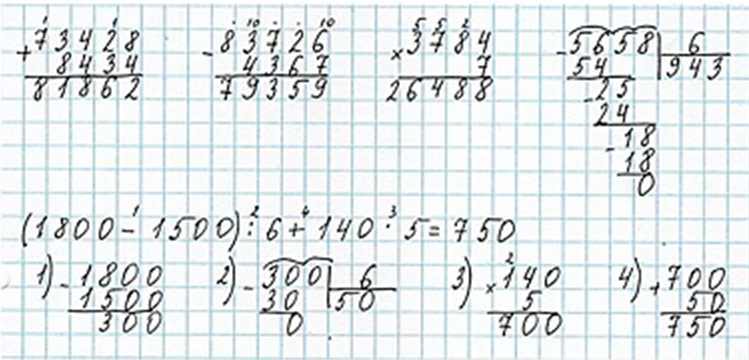 1 1
+ 73428
8434
81862
. 10 . 10
- 83726
4367
79359
5 5 2
× 3784
7
26488
- 5658 | 6
54 943
- 25
24
- 18
18
0
1 2 4 3
(1800 - 1500) : 6 + 140 · 5 = 750
1) - 1800
1500
300
2) - 300 | 6
30 50
0
2
3) × 140
5
700
4) + 700
50
750